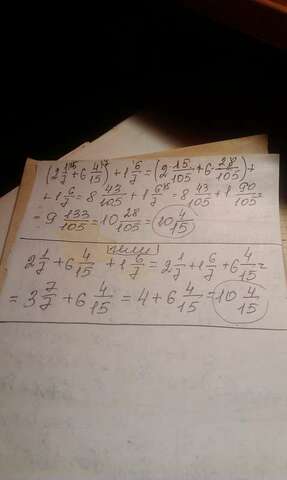 (2 1/7 + 6 4/15) + 1 6/7 = (2 15/105 + 6 28/105) +
+ 1 6/7 = 8 43/105 + 1 6/7 = 8 43/105 + 1 90/105 =
= 9 133/105 = 10 28/105 = 10 4/15
или
2 1/7 + 6 4/15 + 1 6/7 = 2 1/7 + 1 6/7 + 6 4/15 =
= 3 7/7 + 6 4/15 = 4 + 6 4/15 = 10 4/15